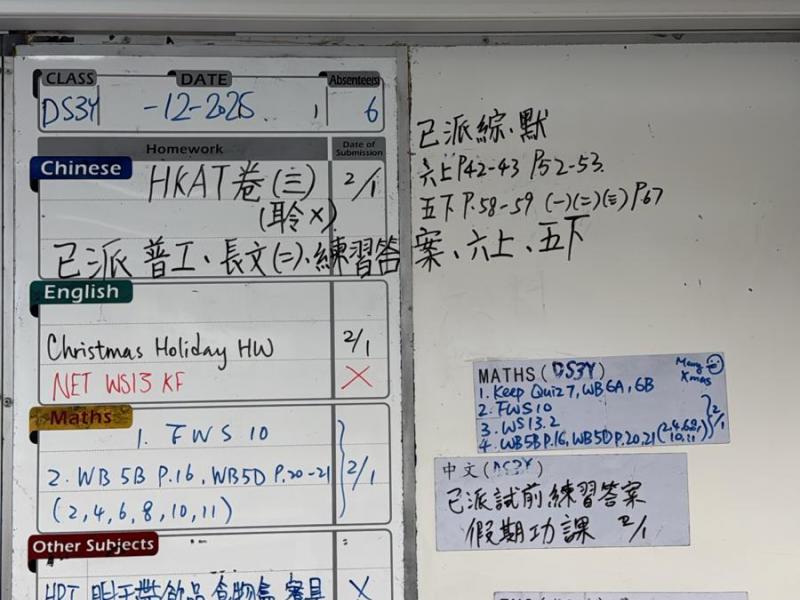 CLASS DATE Absentee(s)
DS3Y -12-2025 6
Homework Date of Submission
Chinese HKAT卷(三) 2/1
(聆×)
已派 普工、長文(二)、練習答案、六上、五下
English
Christmas Holiday HW 2/1
NET WS13 KF ×
Maths
1. FWS 10
2. WB 5B P.16, WB5D P.20-21 2/1
(2,4,6,8,10,11)
Other Subjects
HPT 明天帶飲品 食物盒 餐具 ×
已派綜、默
六上 P.42-43 P.52-53
五下 P.58-59 (一)(二)(三) P.67
MATHS (DS3Y) Merry Xmas
1. Keep Quiz 7, WB 6A, 6B
2. FWS 10
3. WS 13.2
4. WB5B P.16, WB5D P.20,21 (2,4,6,8,10,11) 2/1
中文 (DS3Y)
已派試前練習答案
假期功課 2/1